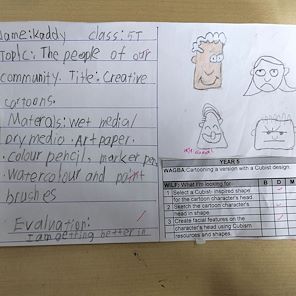 Name:Kaddy class: 5T
Topic: The people of our
community. Title: Creative
cartoons.
Materals: wet media/
dry medio. Art paper.
colour pencil, marker pen
Watercolour and paint
brushes
Evaluation:
I am getting better in
YEAR 5
WAGBA Cartooning a version with a Cubist design.
WILF: What I'm looking for: B D M
1 Select a Cubist- inspired shape for the cartoon character's head.
2 Sketch the cartoon character's head in shape.
3 Create facial features on the character's head using Cubism resources and shapes.